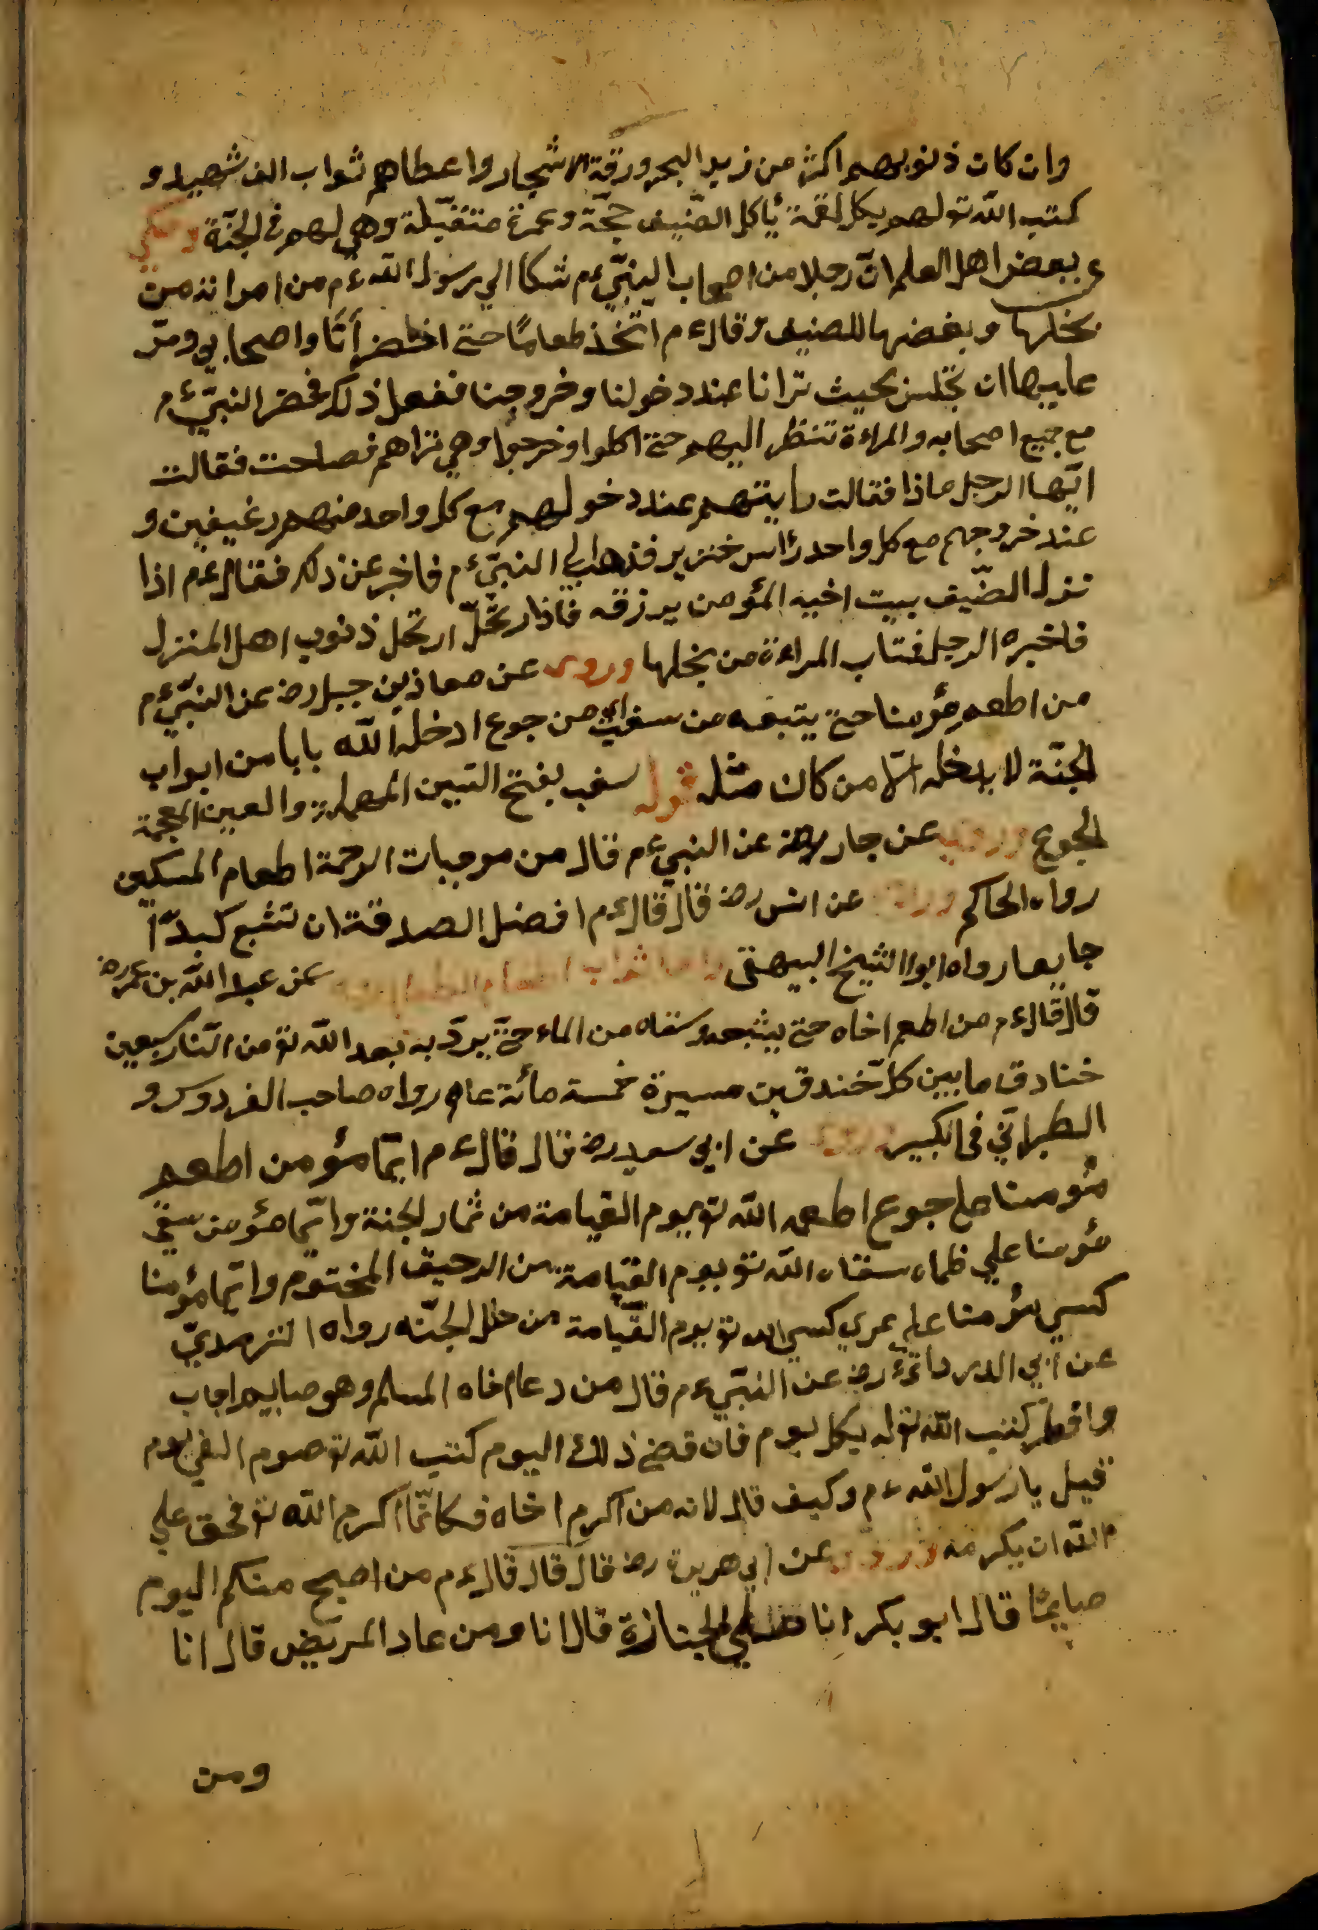 وان كان ذنوبهم اكثر من زبد البحر ورقة الاشجار واعطاهم ثواب الف شهيد و
كتب الله تو لهم بكل لقمة يأكل الضّيف حجّة وعمرة متقبّلة وهي لهم في الجنّة وحكي
عن بعض اهل العلم انّ رجلا من اصحاب النبيّ ءم شكا الي رسول الله ءم من امراته من
بخلها وبغضها للضيف وقال ءم اتّخذ طعامًا حتى احضر أنا واصحابي ومرّ
عليها ان تجلس بحيث ترانا عند دخولنا وخروجنا ففعل ذلك فحضر النبيّ ءم
مع جميع اصحابه والمراءة تنظر اليهم حتى اكلوا وخرجوا وهي تراهم فصاحت فقالت
ايّها الرجل ماذا فقالت رايتهم عند دخولهم مع كل واحد منهم رغيفين و
عند خروجهم مع كل واحد رأس خنزير فذهب الي النبيّ ءم فاخبر عن ذلك فقال ءم اذا
نزل الضّيف ببيت اخيه المؤمن يرزقه فاذا رتحلّ ارتحل ذنوب اهل المنزل
فاخبره الرجل فتاب المراءة من بخلها وروى عن معاذ بن جبل رضه عن النبيّ ءم
من اطعم مؤمنا حتى يتبعه من سغب اي من جوع ادخله الله بابا من ابواب
الجنّة لا يدخله الّا من كان مثله قوله سغب بفتح السّين المهملة والعين المعجمة
الجوع وروى عن جابر رضه عن النبيّ ءم قال من موجبات الرحمة اطعام المسكين
رواه الحاكم وروى عن انس رضه قال قال ءم افضل الصدقة ان تشبع كبدًا
جايعا رواه ابوا الشيخ البيهقى واما ثواب اطعام الطعام عن عبد الله بن عمر رضه
قال قال ءم من اطعم اخاه حتى يشبعه وسقاه من الماء حتّى يردّ به بعد الله تو من النّار سبعين
خنادق ما بين كلّ خندقين مسيرة خمسة مأئة عام رواه صاحب الفردوس و
الطبراني في الكبير وروى عن ابي سعيد رضه قال قال ءم ايّما مؤمن اطعم
مؤمنا على جوع اطعمه الله تو يوم القيامة من ثمار الجنة وايّما مؤمن سقى
مؤمنا علي ظماء سقاه الله تو يوم القيامة من الرحيق المختوم وايّما مؤمنا
كسي مؤمنا علي عري كسي الله تو يوم القيامة من حلل الجنّه رواه الترمديّ
عن ابي الدرداء رضه عن النبّي ءم قال من دعا اخاه المسلم وهو صايم اجاب
وافطر كتب الله تو له بكل يوم فان قضى ذلك اليوم كتب الله تو صوم الفي يوم
قيل يا رسول الله ءم وكيف قال لانه من اكرم اخاه فكانّما اكرم الله تو فحق علي
الله ان يكرمه وروى عن ابي هريرة رضه قال قال قال ءم من اصبح منكم اليوم
صايمًا قال ابو بكر انا الجنازة قال انا ومن عاد المريض قال انا
ومن